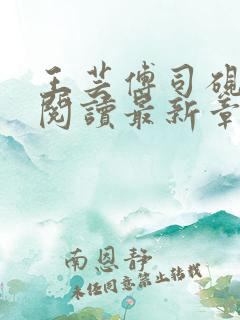 王芸傅司硯
閱讀最新章
南恩静
未经同意禁止转载